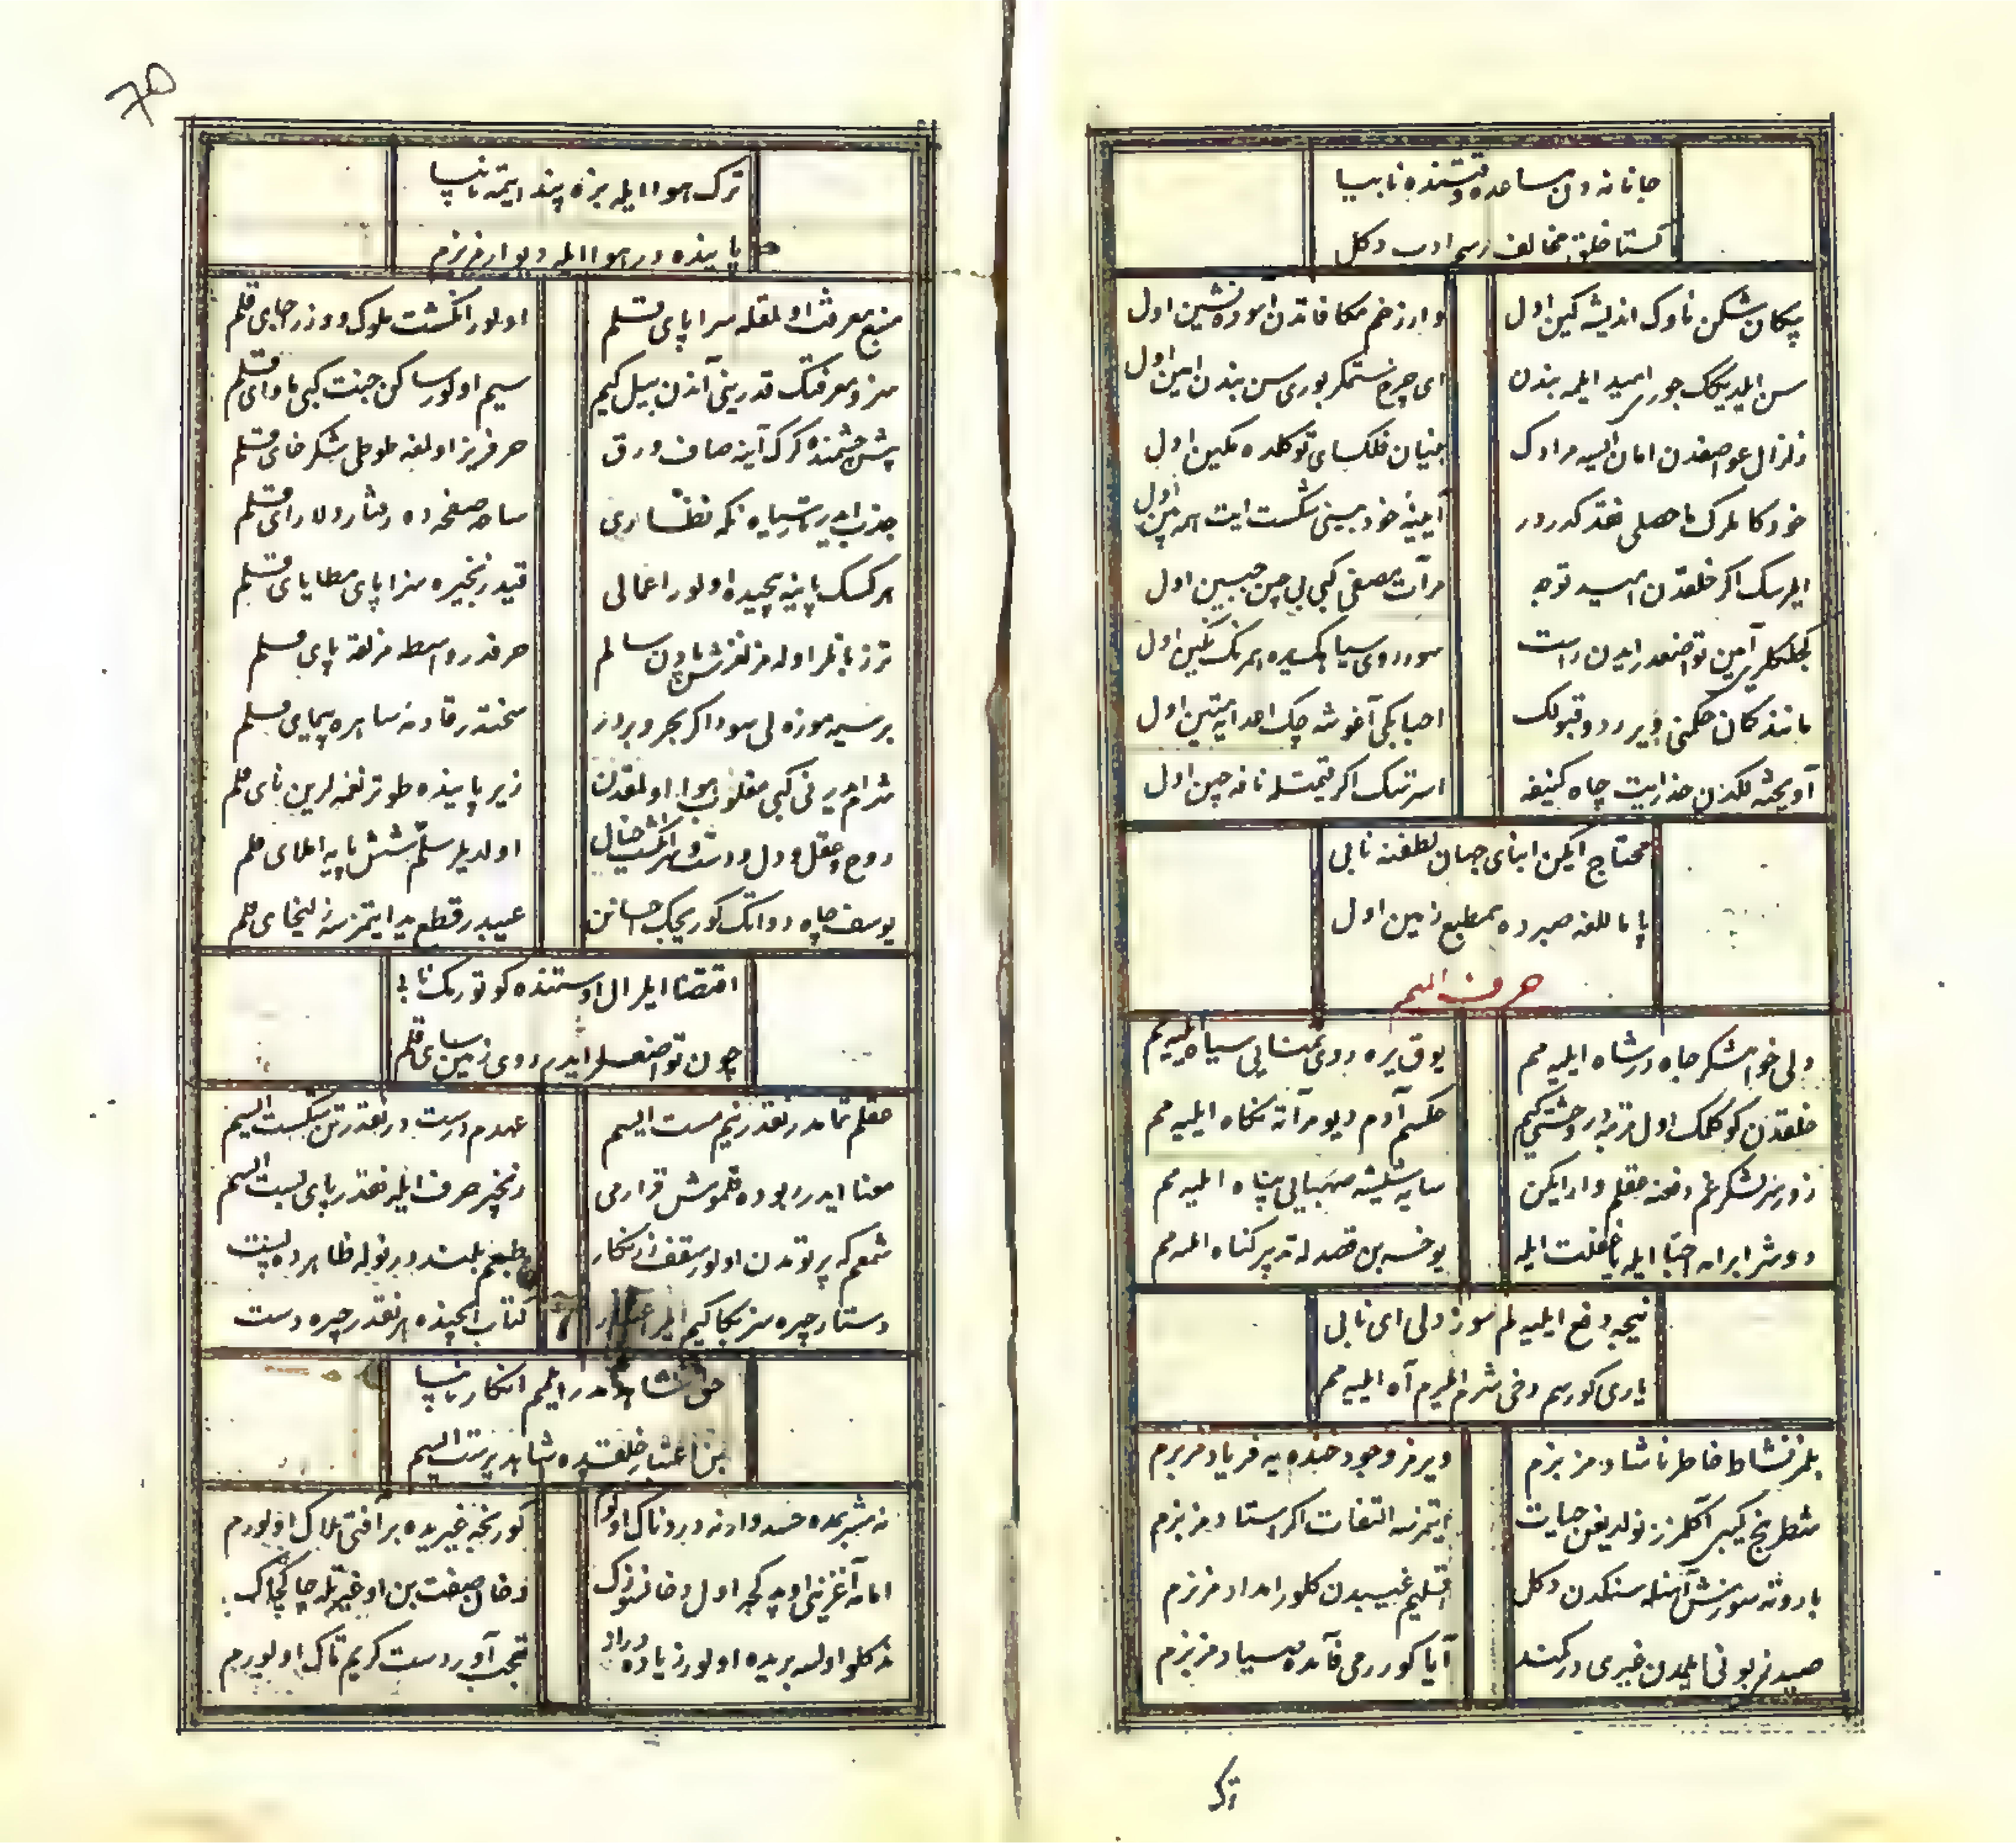 جانانه دن مساعده وقتنده نابیا
کستاخلق مخالف رسم ادب دکل
پیکان شکن ناوک اندیشه کین اول
وار زخم مکافاتدن اسوده نشین اول
سن ایلدیکک جور امید ایلمه بندن
ای چرخ ستمکر یوری سن بندن امین اول
زلزال عواصفدن امان ایسه مرادک
بنیان فلکسای توکلده مکین اول
خودکاملرک حاصلی هقدکدر
آیینه خود بینی شکست ایت همه بین اول
ایلرسک اکر خلقدن امید توجه
مرآت مصفی کبی بی چین جبین اول
کجلکلری آیین تواضعدر ایدن راست
روی سیاه همرنک نکین اول
مانند کمان حکمنی ویر رد و قبولک
احبابکی آغوشه چک اعدایه متین اول
آویخته لکدن حذر ایت چاه کنیفه
استرسک اکر قیمتله نافه چین اول
محتاج ایکن ابنای جهان لطفنه نابی
پامال لغه صبر ده همطبع زمین اول
حرف المیم
دلی خواهشکر جاه درشاه ایلیه مم
یوق یره روی تمنایی سیاه ایلیه مم
خلقدن کوکلمک اول مرتبه در وحشتی کیم
عکسم آدم دیو مرآته نکاه ایلیه مم
زور سرلشکر غم دفعنه عقلم وار ایکن
سایه شیشه صهبایی پناه ایلیه مم
دوشر ابرامه احبا ایله یا غفلت ایله
یوخسه بن قصدله تدبیر کناه ایلیه مم
نیجه دفع ایلیه لم سوز دلی ای نابی
یاری کورسم دخی شرم ایلرم آه ایلیه مم
بلمز نشاط خاطر ناشادمز بزم
ویرمز وجود خنده یه فریادمز بزم
شطرنج کبی آکلرز نولدیغن حیات
ایتمزسه التفات اکر استادمز بزم
باروته سوزش آتشله سنکدن دکل
اقلیم غیبدن کلور امدادمز بزم
صیدنربونی ایلمدن غیری در کمند
آیا کوررمی فائده صیادمز بزم
ترک
70
ترک هوا ایله بزه پند ایتمه نابیا
پاینده در هوا ایله دیوارمز بزم
منبع معرفت اولمقله سراپای قلم
اولور انکشت ملوک و وزرا جای قلم
هنر و معرفتک قدرینی آندن بیل کیم
سیم اولور ساکن جنت کبی ماوای قلم
پیش چشمنده کرک آینه صاف ورق
حرفریز اولمغه طوطی شکرخای قلم
جذب ایدر ماسیاه نکه نظاری
ساحه صفحه ده رفتار دلارای قلم
هر کسک پاینه پیچیده اولور اعمالی
قید زنجیره سزا پای مطایای قلم
تر زبانلر اوله مز لغزش پادن سالم
حرفدر واسطه مزلقه پای قلم
برسیه موزه لی سوداکر بحر و بردر
سخندر قادنه ساهره پیمای قلم
شرام ایدر نی کبی مغلوب هوا اولمقدن
زیر پاینده طوتر نغمه لرین نای قلم
روح و عقل و دل و دست و هر انکشت خیال
اولدیلر سلم شش پایه اعلای قلم
یوسف چاه دواتک کوریجک احسانن
عیبدر قطع ید ایتمزسه زلیخای قلم
اقتضا ایلر ال اوستنده کوتورمک نابی
چون تواضعله ایدر روی زمین سای قلم
عقلم تمامدر نقدر نیم مست ایسم
عهدم درستدر نقدر تن شکست ایسم
معنا ایدر ربوده قلموش قرارمی
زنجیر حرف ایله نقدر پای بست ایسم
شمعم که پرتومدن اولور سقف زرنکار
طبعم بلند در نوله ظاهرده پست
دستار چیره سز بکا کیم ایلر اعتبار
کتاب ایچنده نقدر چیره دست
حق شاهدمدر ایلیم انکار نابیا
بن اعتبار خلقده شاهد پرست ایسم
نه مشربمده حسد وار نه دردناک اولورم
کورنجه غیریده بر آفتی هلاک اولورم
اما نه آغزینی اوپه کجه اول دخانزنوک
دخان صفت بن او غیرتله چاکچاک
نه کلو اولسه بریده اولور زیاده دراز
تعجب آور دست کریم تاک اولورم